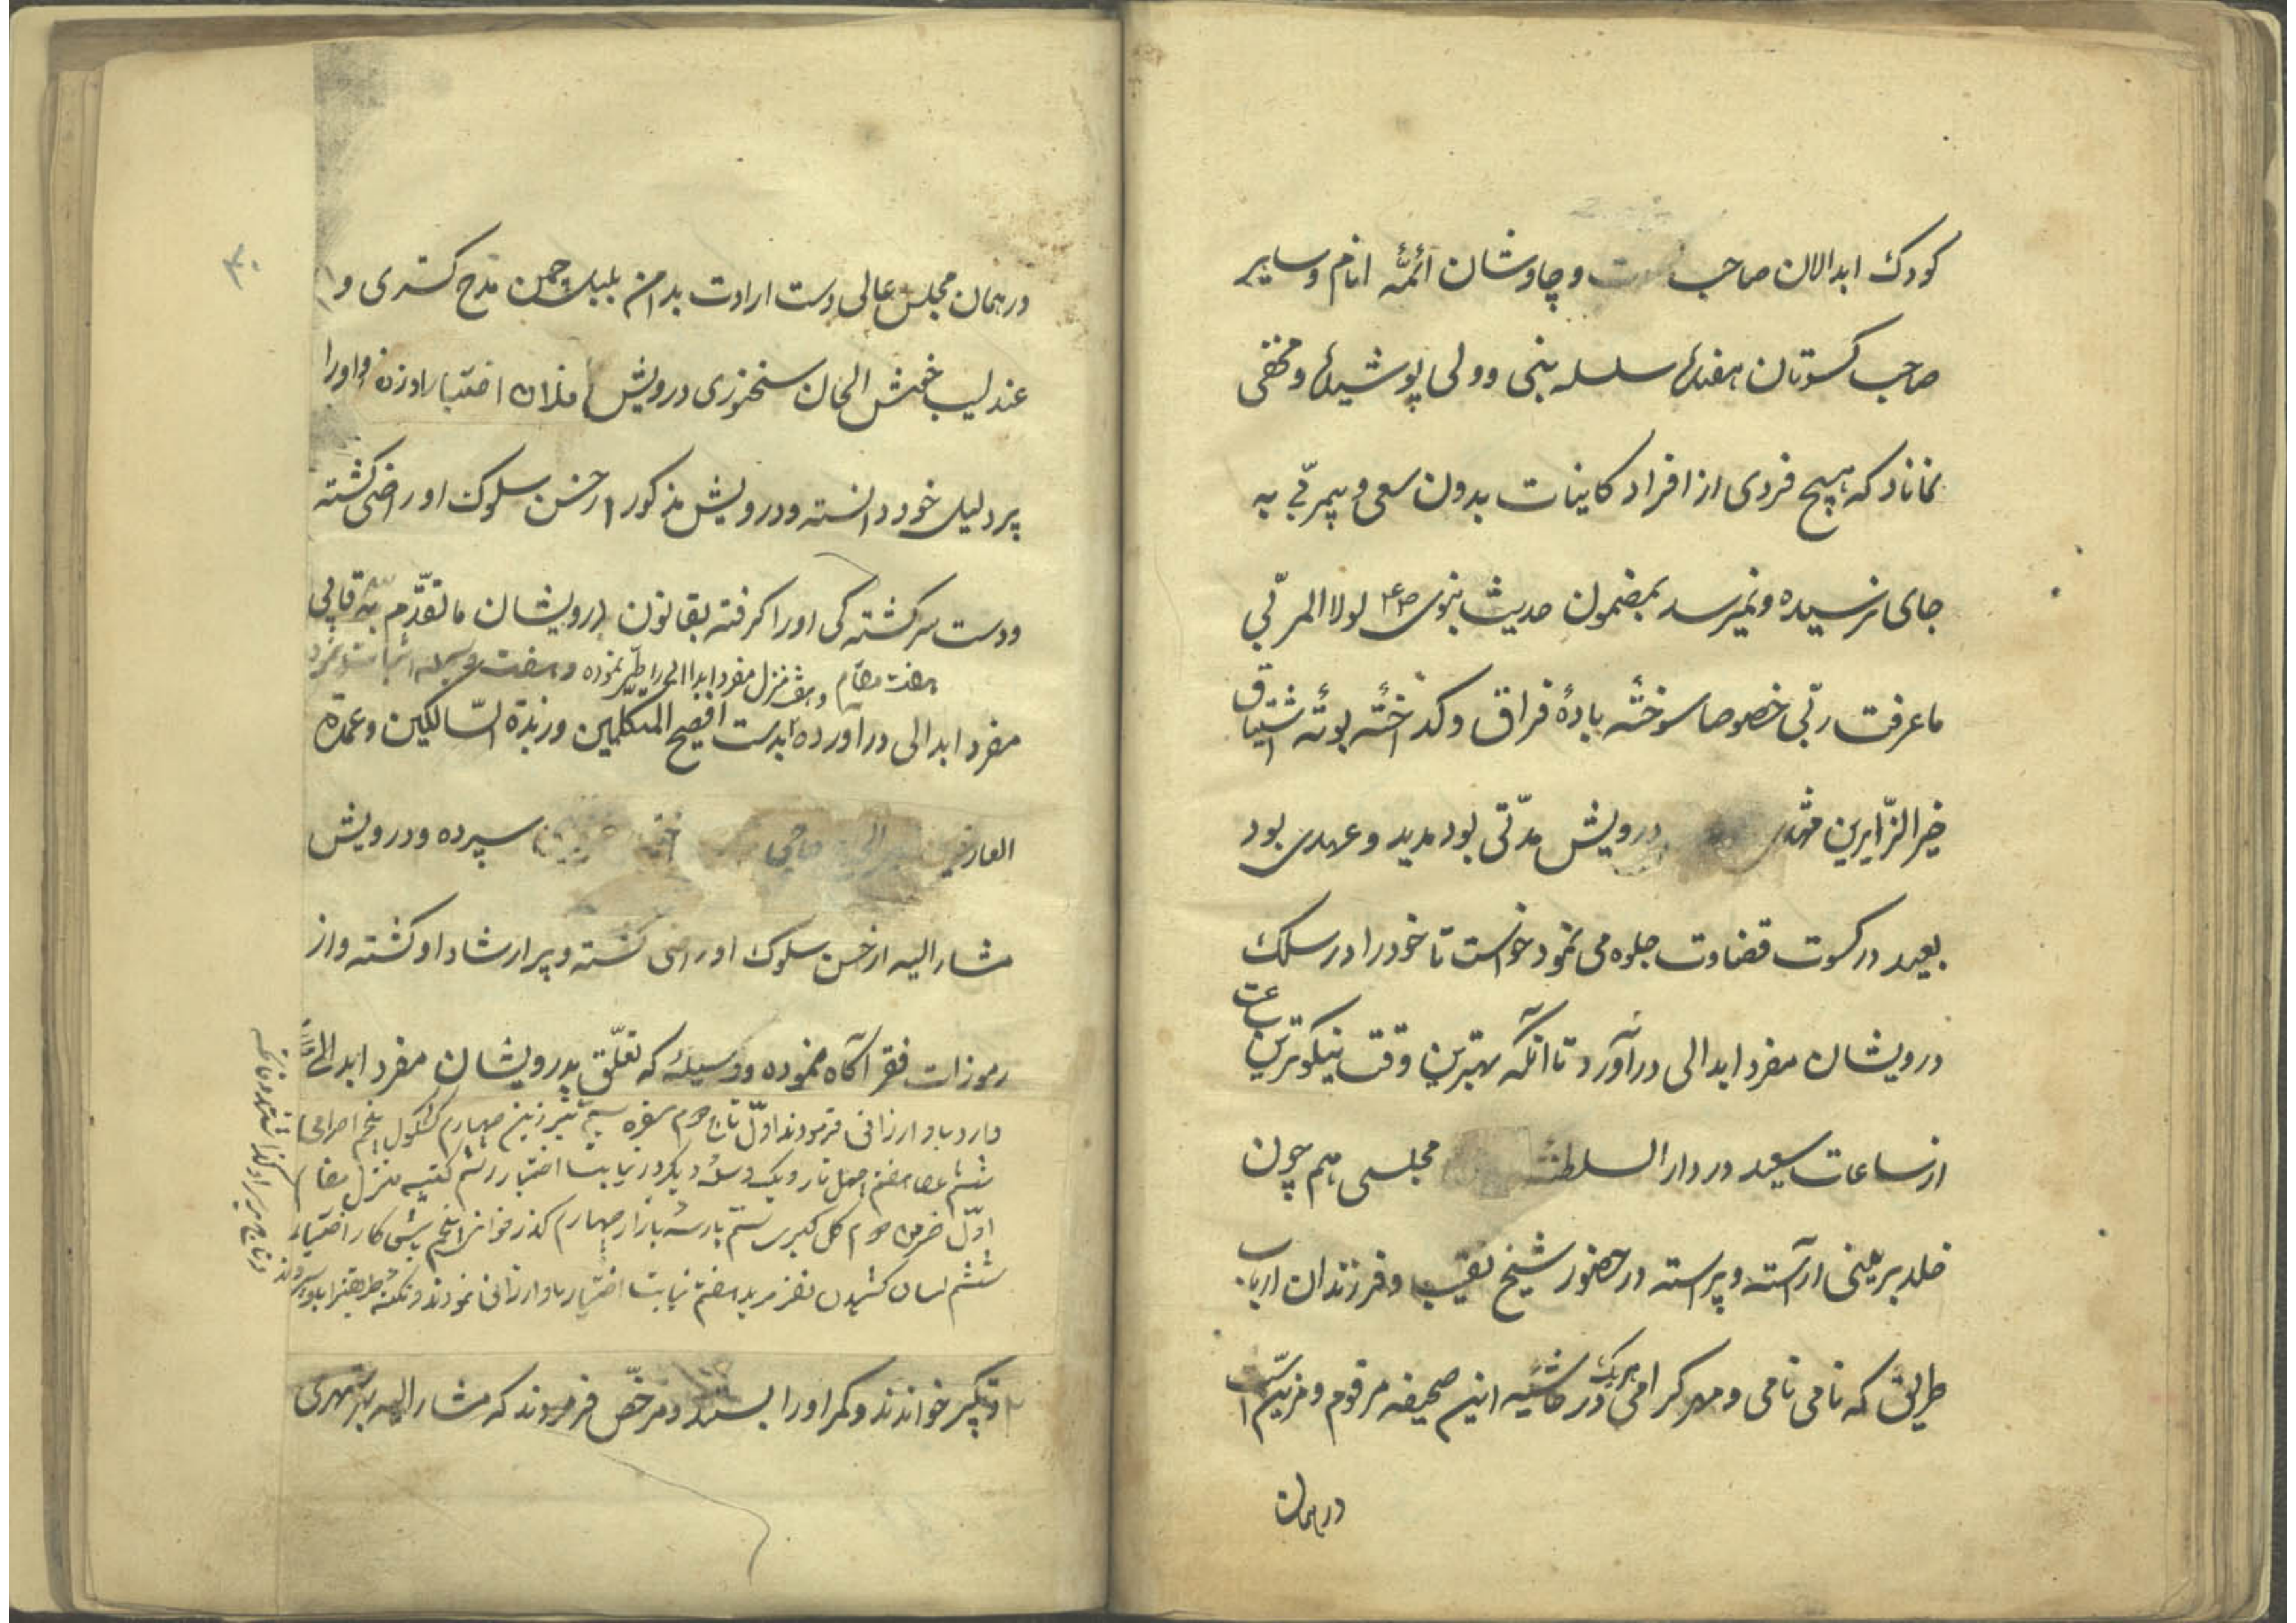 کودک ابدالان صاحب وچاوشان ائمّهٔ انام وسایر
صاحب کسوتان هفدهٔ سلسله بنی وولی پوشیده ومخفی
نماناد که هیچ فردی از افراد کاینات بدون سعی وپیر مربّی به
جای نرسیده ونمیرسد بمضمون حدیث نبوی لولا المربّی
ما عرفت ربّی خصوصا سوخته بادهٔ فراق وکداخته بوتهٔ اشتیاق
خیر الزّایرین درویش مدّتی بود مدید وعهدی بود
بعید در کسوت قضاوت جلوه می نمود خواست تا خود را در سلک
درویشان مفرد ابدالی درآورد تا آنکه بهترین وقت نیکوترین
ساعت
از ساعات سعید در دار السلطنهٔ مجلسی هم چون
خلد برینی آراسته وپیراسته در حضور شیخ نقیب وفرزندان ارباب
طریق که نامی نامی ومهر کرامی هریک در حاشیه این صحیفه مرقوم ومزین است
درهمان
۴۰
درهمان مجلس عالی دست ارادت بدامن بلبل چمن مدح کستری و
عندلیب خوش الحان سخنوری درویش فلان اختیار اوزده واورا
پر دلیل خود دانسته ودرویش مذکور از حسن سلوک او راضی کشته
ودست سرکشته کی اورا کرفته بقانون درویشان ما تقدّم
هفت مقام وهفت منزل مفرد ابدالی را طیّ نموده وهفت
مفرد ابدالی درآورده بدست افصح المتکلمین وزبدة السّالکین وعمدة
العارفین حاجی سپرده ودرویش
مشار الیه از حسن سلوک او راضی کشته وپر ارشاد او کشته واز
رموزات فقر آکاه نموده ووسیلهٔ که تعلّق بدرویشان مفرد ابدالی
دارد باو ارزانی فرمودند اوّل تاج دوم سفره سیم تبرزین چهارم کشکول پنجم احرامی
ششم عصا هفتم چهل تار ویک وسلهٔ دیکر در نیابت اختیار رسم کتیبه منزل مقام
اوّل خرمن دوم کل کبری سیّم پارسه بازار چهارم کذر خوانی پنجم پیش کار اختیار
ششم لسان کشیدن نفر مرید هفتم نیابت اختیار باو ارزانی نمودند
وتکبیر خواندند وکمر اورا بستند ومرخّص فرمودند که مشار الیه بهر شهری